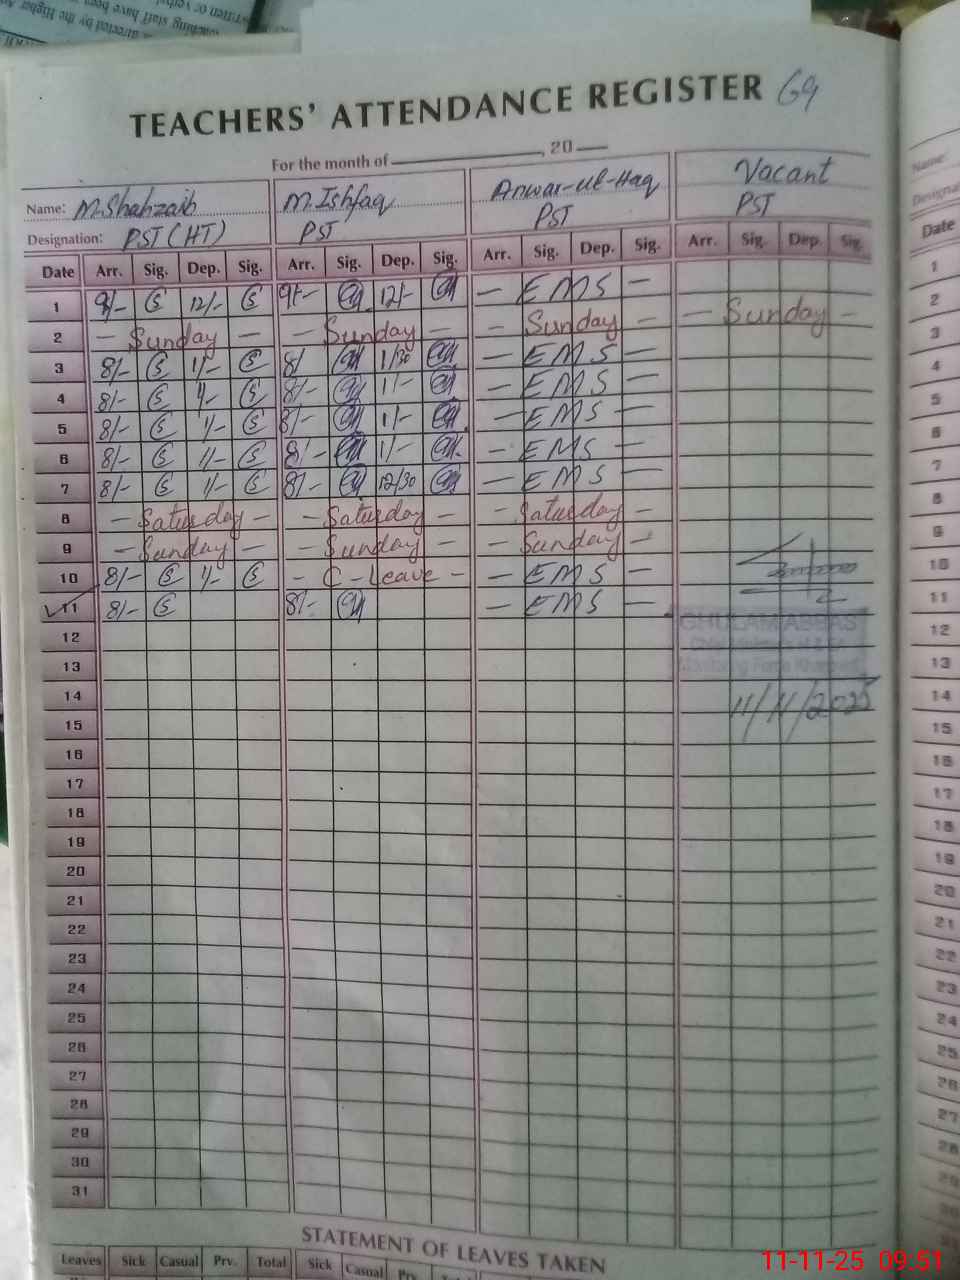 TEACHERS' ATTENDANCE REGISTER 69
For the month of , 20
Name: M.Shahzaib M.Ishfaq Anwar-ul-Haq Vacant
Designation: PST (HT) PST PST PST
Date Arr. Sig. Dep. Sig. Arr. Sig. Dep. Sig. Arr. Sig. Dep. Sig. Arr. Sig. Dep. Sig.
1 9/- 12/- 9/- 12/- — EMS —
2 — Sunday — — Sunday — — Sunday — — Sunday —
3 8/- 1/- 8/ 1/30 — EMS —
4 8/- 1/- 8/- 1/- — EMS —
5 8/- 1/- 8/- 1/- — EMS —
6 8/- 1/- 8/- 1/- — EMS —
7 8/- 1/- 8/- 12/30 — EMS —
8 — Saturday — — Saturday — — Saturday —
9 — Sunday — — Sunday — — Sunday —
10 8/- 1/- - C-Leave - — EMS —
11 8/- 8/- — EMS —
GHULAM ABBAS
12
13
14 11/11/2025
15
16
17
18
19
20
21
22
23
24
25
26
27
28
29
30
31
STATEMENT OF LEAVES TAKEN
Leaves Sick Casual Prv. Total Sick Casual Prv. Total
11-11-25 09:51
Name:
Date
1
2
3
4
5
6
7
8
9
10
11
12
13
14
15
16
17
18
19
20
21
22
23
24
25
26
27
28